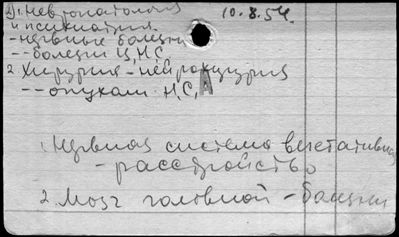 1. Невропатология 10.8.54.
и психиатрия.
- нервные болезни
-- болезни Ц.Н.С.
2. Хирургия - нейрохирургия
-- опухоли Н.С.
1. Нервная система вегетативная
- расстройство
2. Мозг головной - болезни